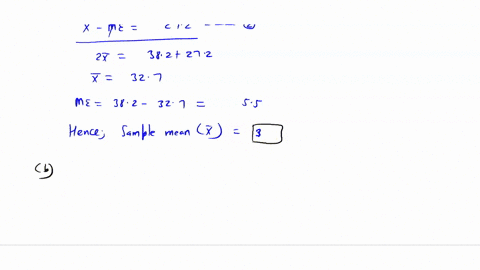 x - ME =
2x̄ = 38.2 + 27.2
x̄ = 32.7
ME = 38.2 - 32.7 = 5.5
Hence, Sample mean (x̄) = 3
(b)